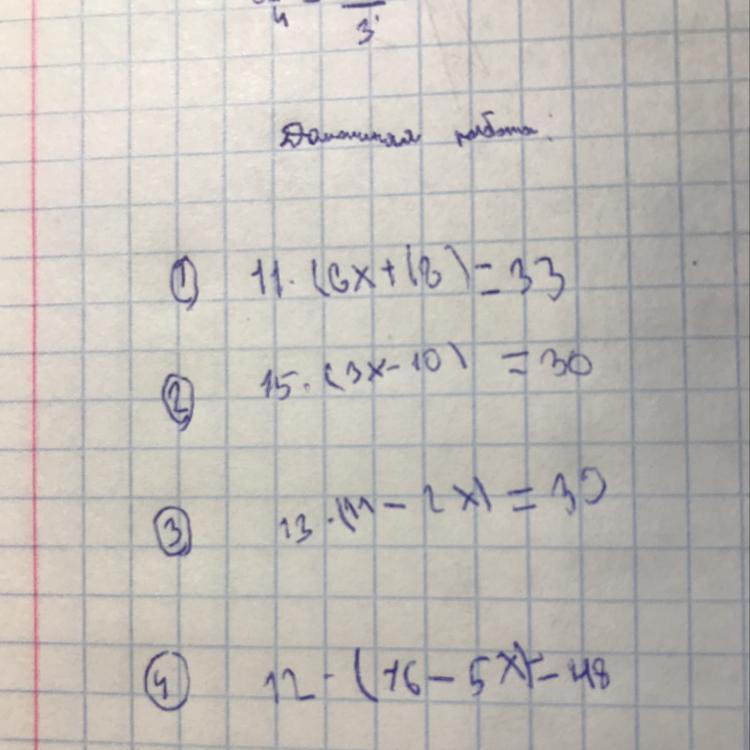 4 - 3
Домашняя работа:
① 11·(6x+18)=33
② 15·(3x-10) =30
③ 13·(11-2x)=39
④ 12·(16-5x)=48